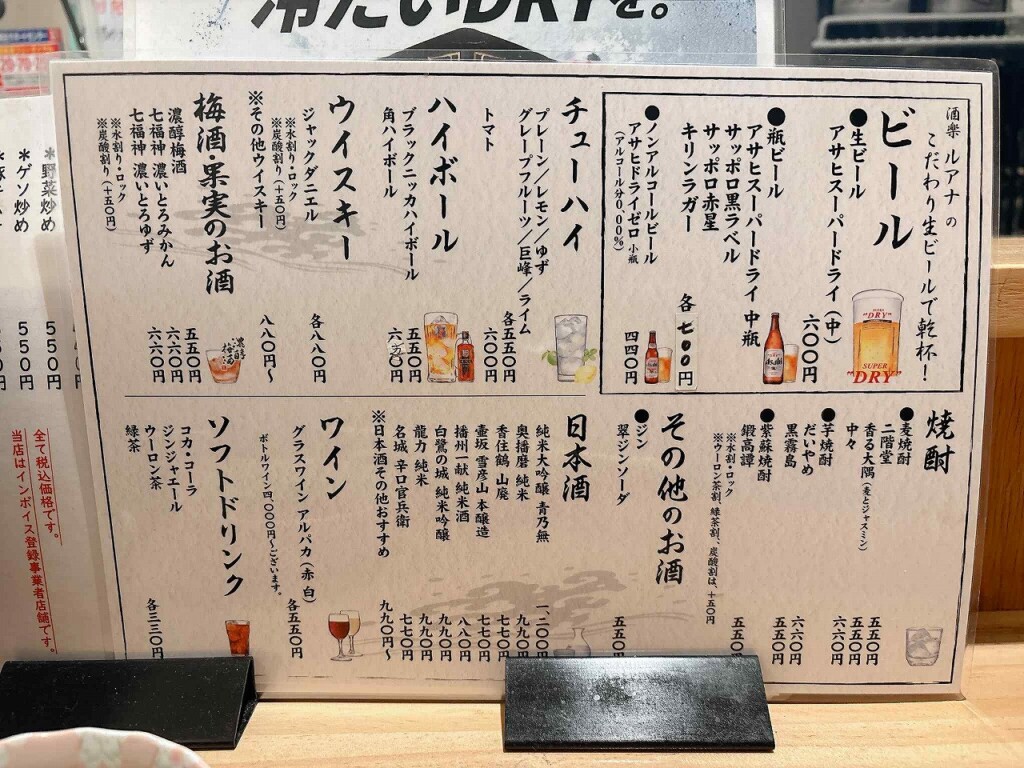 冷たいDRYを。
酒楽 ルアナ の
こだわり生ビールで乾杯!
ビール
●生ビール
アサヒスーパードライ(中) 六〇〇円
●瓶ビール
アサヒスーパードライ 中瓶
サッポロ黒ラベル
サッポロ赤星
キリンラガー
各七〇〇円
●ノンアルコールビール
アサヒドライゼロ 小瓶 四四〇円
(アルコール分0.00%)
"DRY"
SUPER
"DRY"
チューハイ
プレーン/レモン/ゆず
グレープフルーツ/巨峰/ライム
各五五〇円
トマト 六〇〇円
ハイボール
ブラックニッカハイボール 五五〇円
角ハイボール 六五〇円
ウイスキー
ジャックダニエル 各八八〇円
※水割り・ロック
※炭酸割り(+五〇円)
※その他ウイスキー 八八〇円〜
梅酒・果実のお酒
濃醇梅酒 五五〇円
七福神 濃いとろみかん 六六〇円
七福神 濃いとろゆず 六六〇円
※水割り・ロック
※炭酸割り(+五〇円)
濃醇
梅酒
焼酎
●麦焼酎
二階堂 五五〇円
香る大隅(麦とジャスミン) 五五〇円
中々 六六〇円
●芋焼酎
だいやめ 六六〇円
黒霧島 五五〇円
●紫蘇焼酎
鍛高譚 五五〇円
※水割・ロック
※ウーロン茶割、緑茶割、炭酸割は、+五〇円
その他のお酒
●ジン
翠ジンソーダ 五五〇円
日本酒
純米大吟醸 青乃無 一、二〇〇円
奥播磨 純米 九九〇円
香住鶴 山廃 七七〇円
壷坂 雪彦山 本醸造 七七〇円
播州一献 純米酒 八八〇円
白鷺の城 純米吟醸 九九〇円
龍力 純米 九九〇円
名城 辛口官兵衛 七七〇円
※日本酒その他おすすめ 九九〇円〜
ワイン
グラスワイン アルパカ(赤・白) 各五五〇円
ボトルワイン四、〇〇〇円〜ございます。
ソフトドリンク
コカ・コーラ
ジンジャエール
ウーロン茶
緑茶
各三三〇円
*野菜炒め 550円
*ゲソ炒め 550円
全て税込価格です。
当店はインボイス登録事業者店舗です。